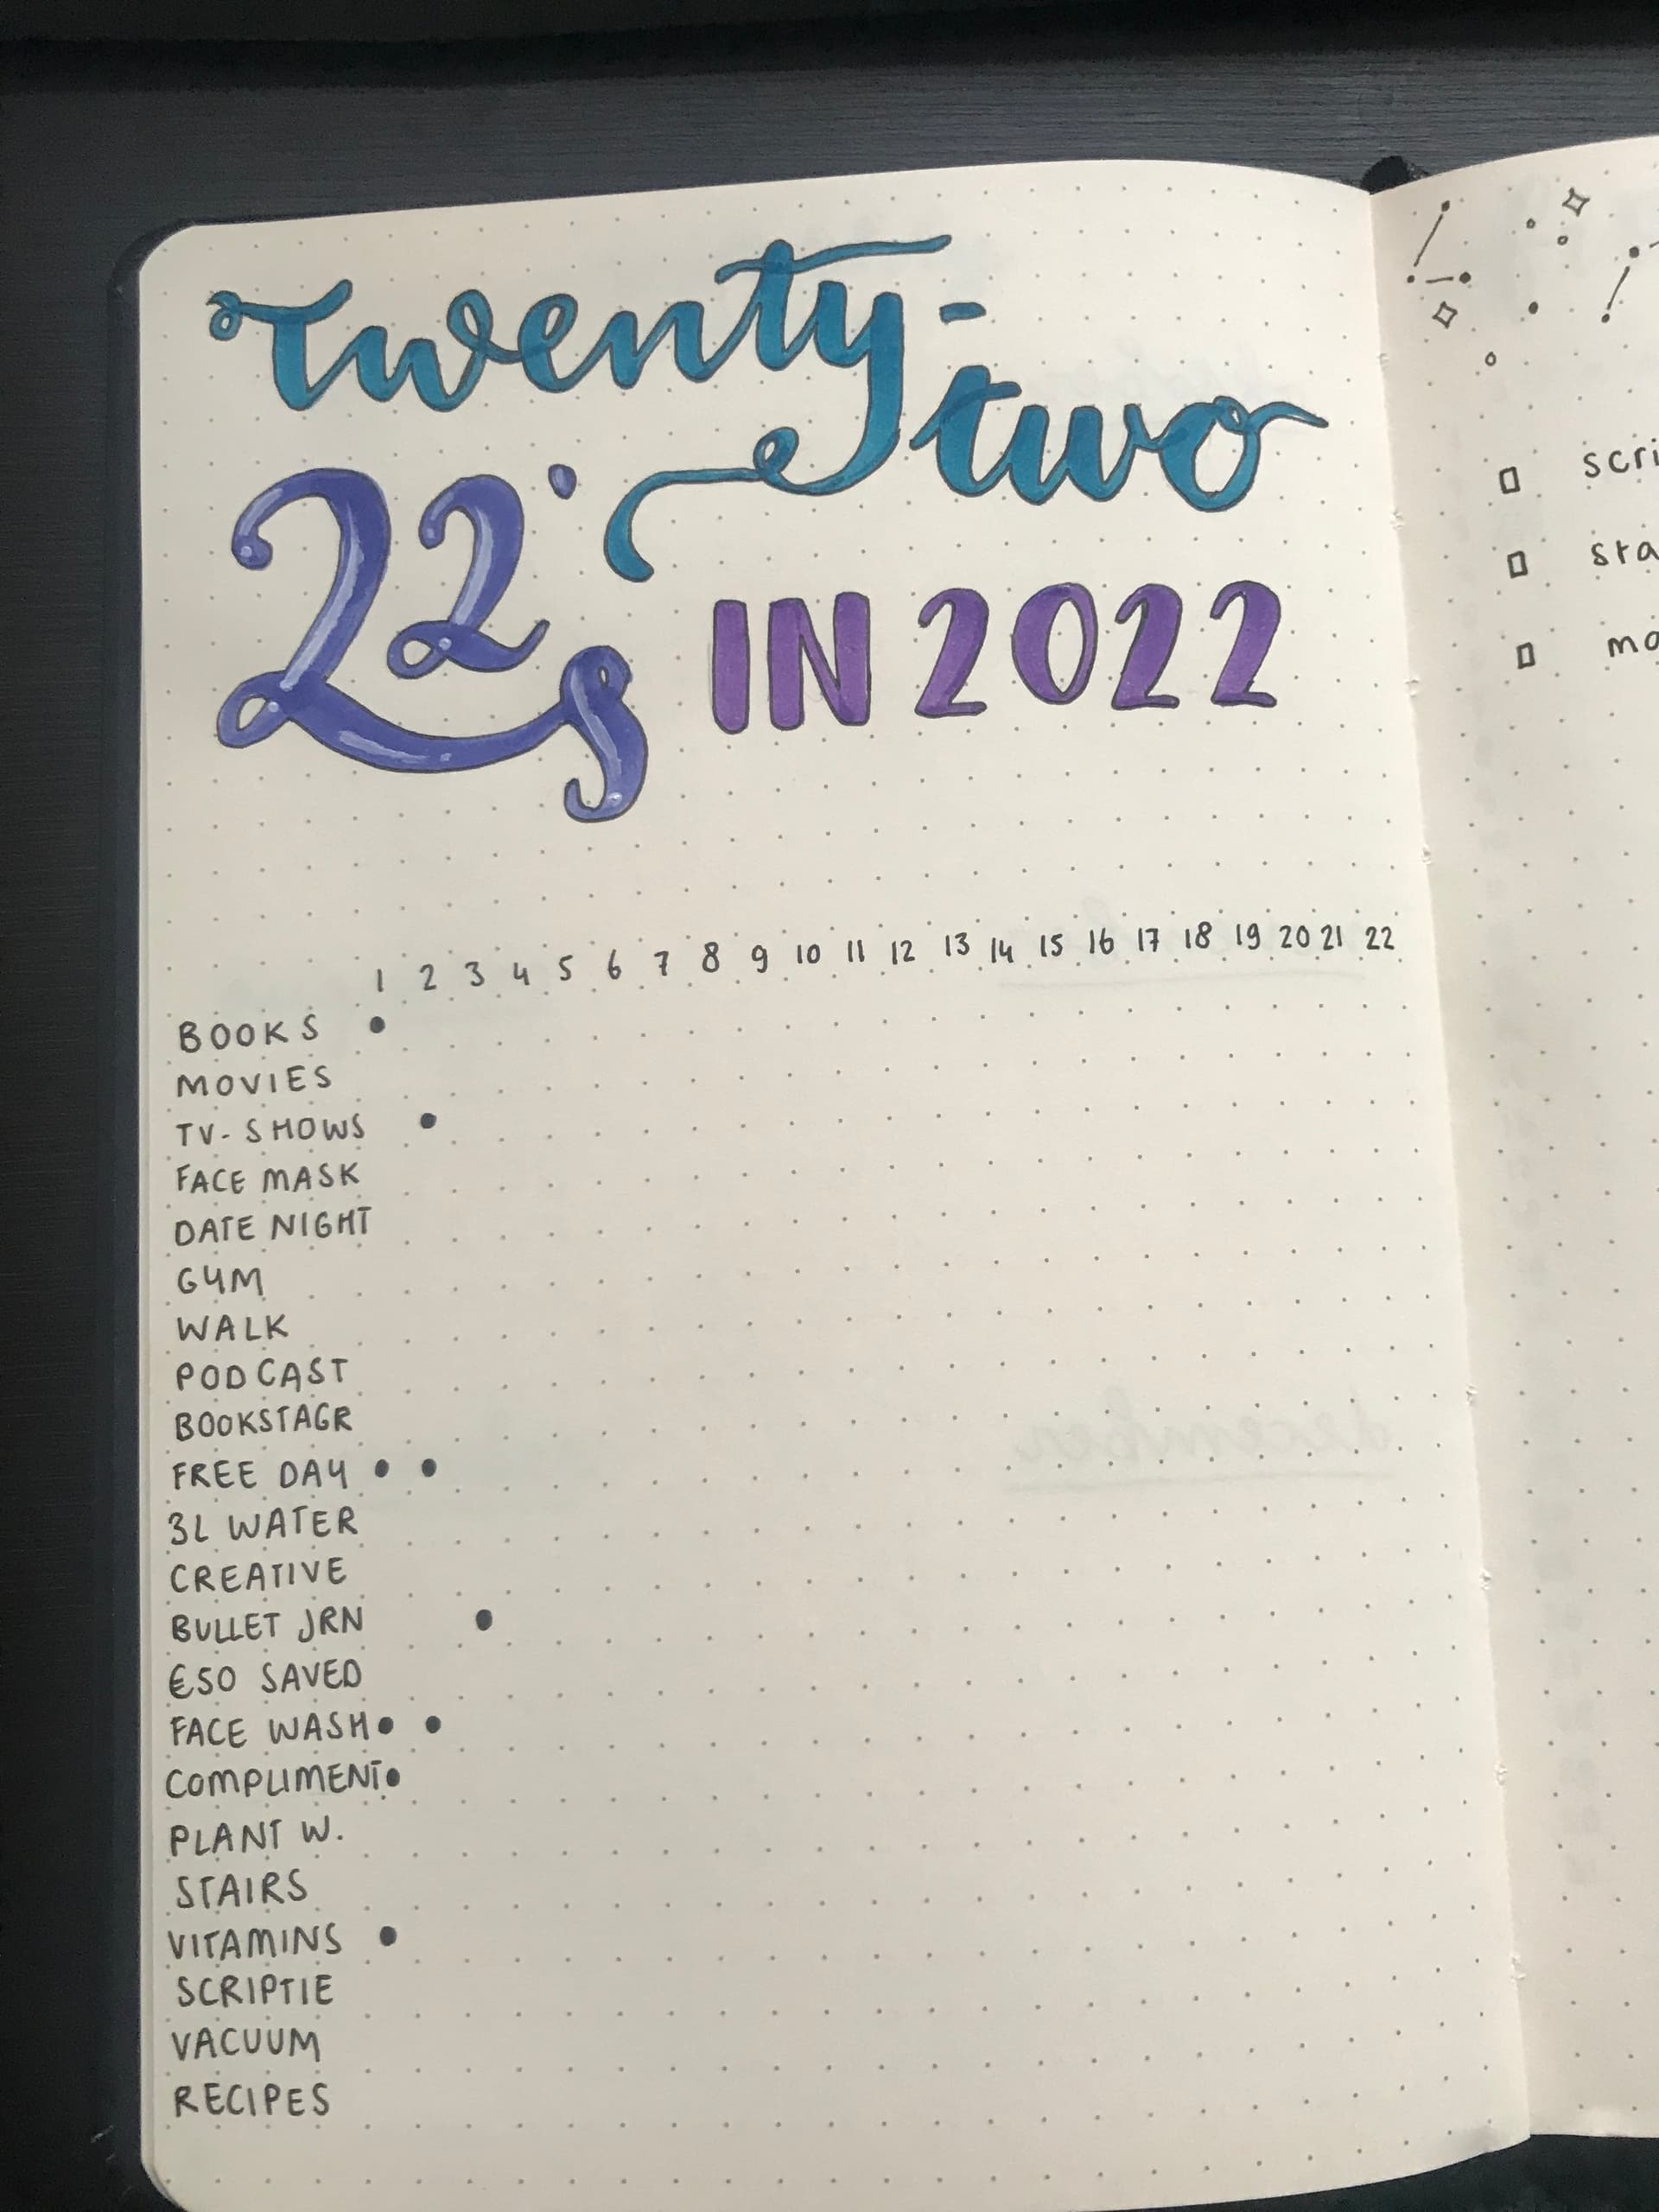 Twenty-
two
22's IN 2022
1 2 3 4 5 6 7 8 9 10 11 12 13 14 15 16 17 18 19 20 21 22
BOOKS
MOVIES
TV-SHOWS
FACE MASK
DATE NIGHT
GYM
WALK
PODCAST
BOOKSTAGR
FREE DAY
3L WATER
CREATIVE
BULLET JRN
€50 SAVED
FACE WASH
COMPLIMENT
PLANT W.
STAIRS
VITAMINS
SCRIPTIE
VACUUM
RECIPES
scri
sta
mo